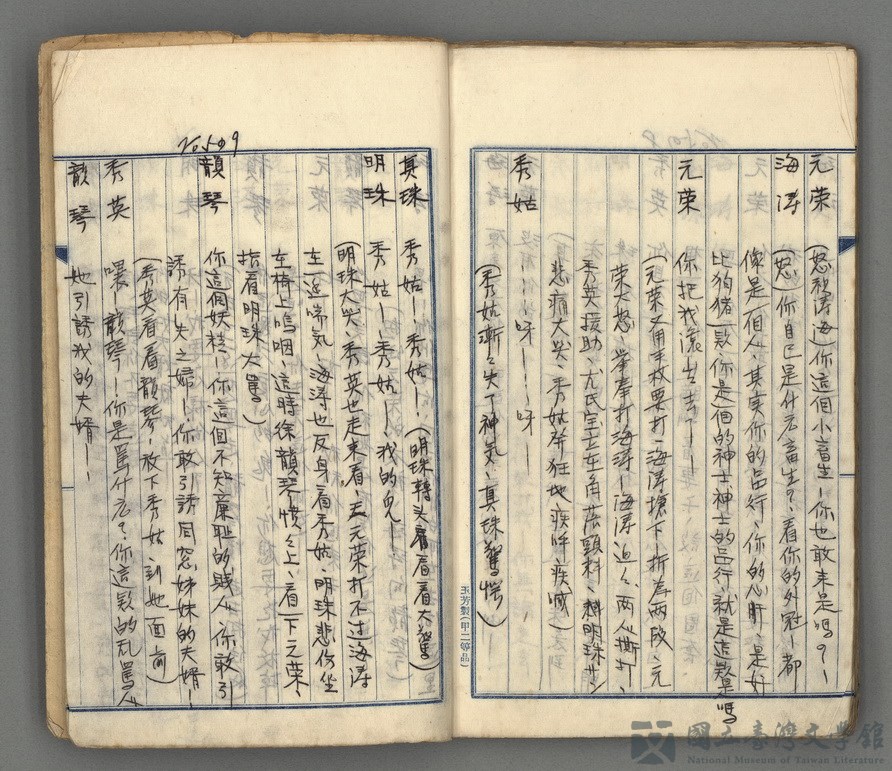 元荣　(怒智濤海)你這個小畜生—你也敢来是嗎？—
海濤　(怒)你自已是什広畜生？、看你的外冠—都
像是一個人、其実你的品行、你的心肝、是好
比狗猪一款、你是一個的神士神士的品行、就是這款是嗎
你把我滾出去了—
元荣　(元荣又用手杖要打—海濤搪下—折為两段、元
荣大怒、挙拳打海濤—海濤迫々、两人撕打、
秀英援助、尤氏宝玉在角落顫抖、
悲痛大哭、秀姑発狂地疾呼疾喊)
秀姑　—呀———呀—
(秀姑漸々失了神気、真珠驚愕)
玉芳製(甲二等品)
20.5の9
真珠　秀姑—、秀姑—、(明珠轉头看看大驚)
明珠　秀姑—秀姑—我的兒—
(明珠大哭、秀英也走来看、王元荣打不过海濤
在一返喘気、海濤也反身看秀姑、明珠悲伤坐
在椅上嗚咽、這時徐韻琴憤々上、看一下元荣、
指着明珠大罵)
韻琴　你這個妖精—你這個不知廉耻的賊人、你敢引
誘有夫之婦—你敢引誘同窓姊妹的夫婿—
(秀英看看韻琴、放下秀姑、到她面前)
秀英　嚷—韻琴—你是罵什広？、你這款的乱罵人
韻琴　她引誘我的夫婿——
國立臺灣文學館
National Museum of Taiwan Literature